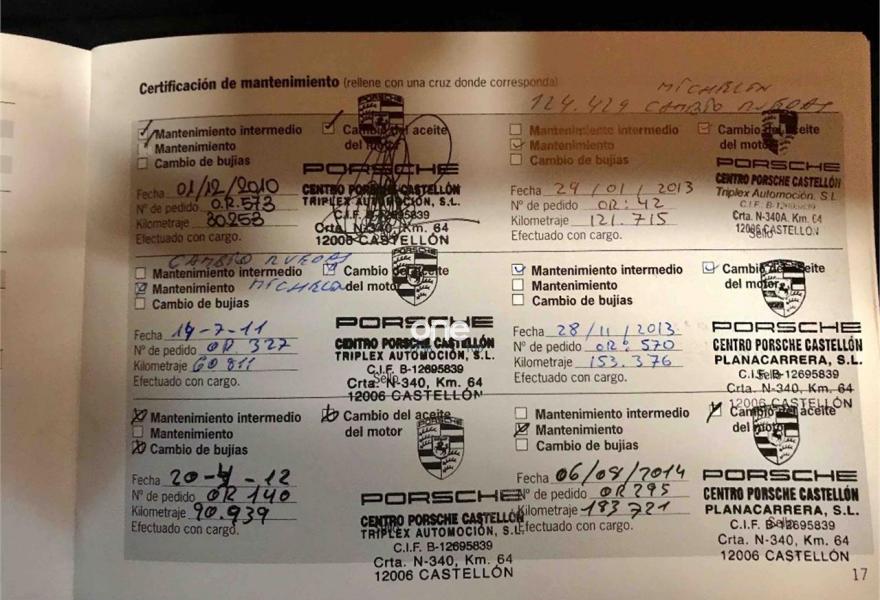 Certificación de mantenimiento (rellene con una cruz donde corresponda)
MICHELÍN
124.429 CAMBIO RUEDAS
Mantenimiento intermedio
Mantenimiento
Cambio de bujías
Cambio del aceite
del motor
Fecha 01/12/2010
Nº de pedido OR.573
Kilometraje 30253
Efectuado con cargo.
PORSCHE
PORSCHE
CENTRO PORSCHE CASTELLÓN
TRIPLEX AUTOMOCIÓN, S.L.
C.I.F. B-12695839
Crta. N-340, Km. 64
12006 CASTELLÓN
Mantenimiento intermedio
Mantenimiento
Cambio de bujías
Cambio del aceite
del motor
Fecha 29/01/2013
Nº de pedido OR: 42
Kilometraje 121.715
Efectuado con cargo.
PORSCHE
CENTRO PORSCHE CASTELLÓN
Triplex Automoción, S.L.
C.I.F. B-12695839
Crta. N-340A, Km. 64
12006 CASTELLON
Sello
CAMBIO RUEDAS
MICHELIN
Mantenimiento intermedio
Mantenimiento
Cambio de bujías
Cambio del aceite
del motor
Fecha 14-7-11
Nº de pedido OR 327
Kilometraje 60811
Efectuado con cargo.
PORSCHE
PORSCHE
one
CENTRO PORSCHE CASTELLÓN
TRIPLEX AUTOMOCIÓN, S.L.
C.I.F. B-12695839
Sello
Crta. N-340, Km. 64
12006 CASTELLÓN
Mantenimiento intermedio
Mantenimiento
Cambio de bujías
Cambio del aceite
del motor
Fecha 28/11/2013
Nº de pedido OR: 570
Kilometraje 153.376
Efectuado con cargo.
PORSCHE
CENTRO PORSCHE CASTELLÓN
PLANACARRERA, S.L.
C.I.F. B-12695839
Sello
Crta. N-340, Km. 64
12006 CASTELLÓN
Mantenimiento intermedio
Mantenimiento
Cambio de bujías
Cambio del aceite
del motor
Fecha 20-4-12
Nº de pedido OR 140
Kilometraje 90.939
Efectuado con cargo.
PORSCHE
PORSCHE
CENTRO PORSCHE CASTELLÓN
TRIPLEX AUTOMOCIÓN, S.L.
C.I.F. B-12695839
Crta. N-340, Km. 64
12006 CASTELLÓN
Mantenimiento intermedio
Mantenimiento
Cambio de bujías
Cambio del aceite
del motor
Fecha 06/08/2014
Nº de pedido OR 295
Kilometraje 183721
Efectuado con cargo.
PORSCHE
CENTRO PORSCHE CASTELLÓN
PLANACARRERA, S.L.
Sello
C.I.F. B-12695839
Crta. N-340, Km. 64
12006 CASTELLÓN
17